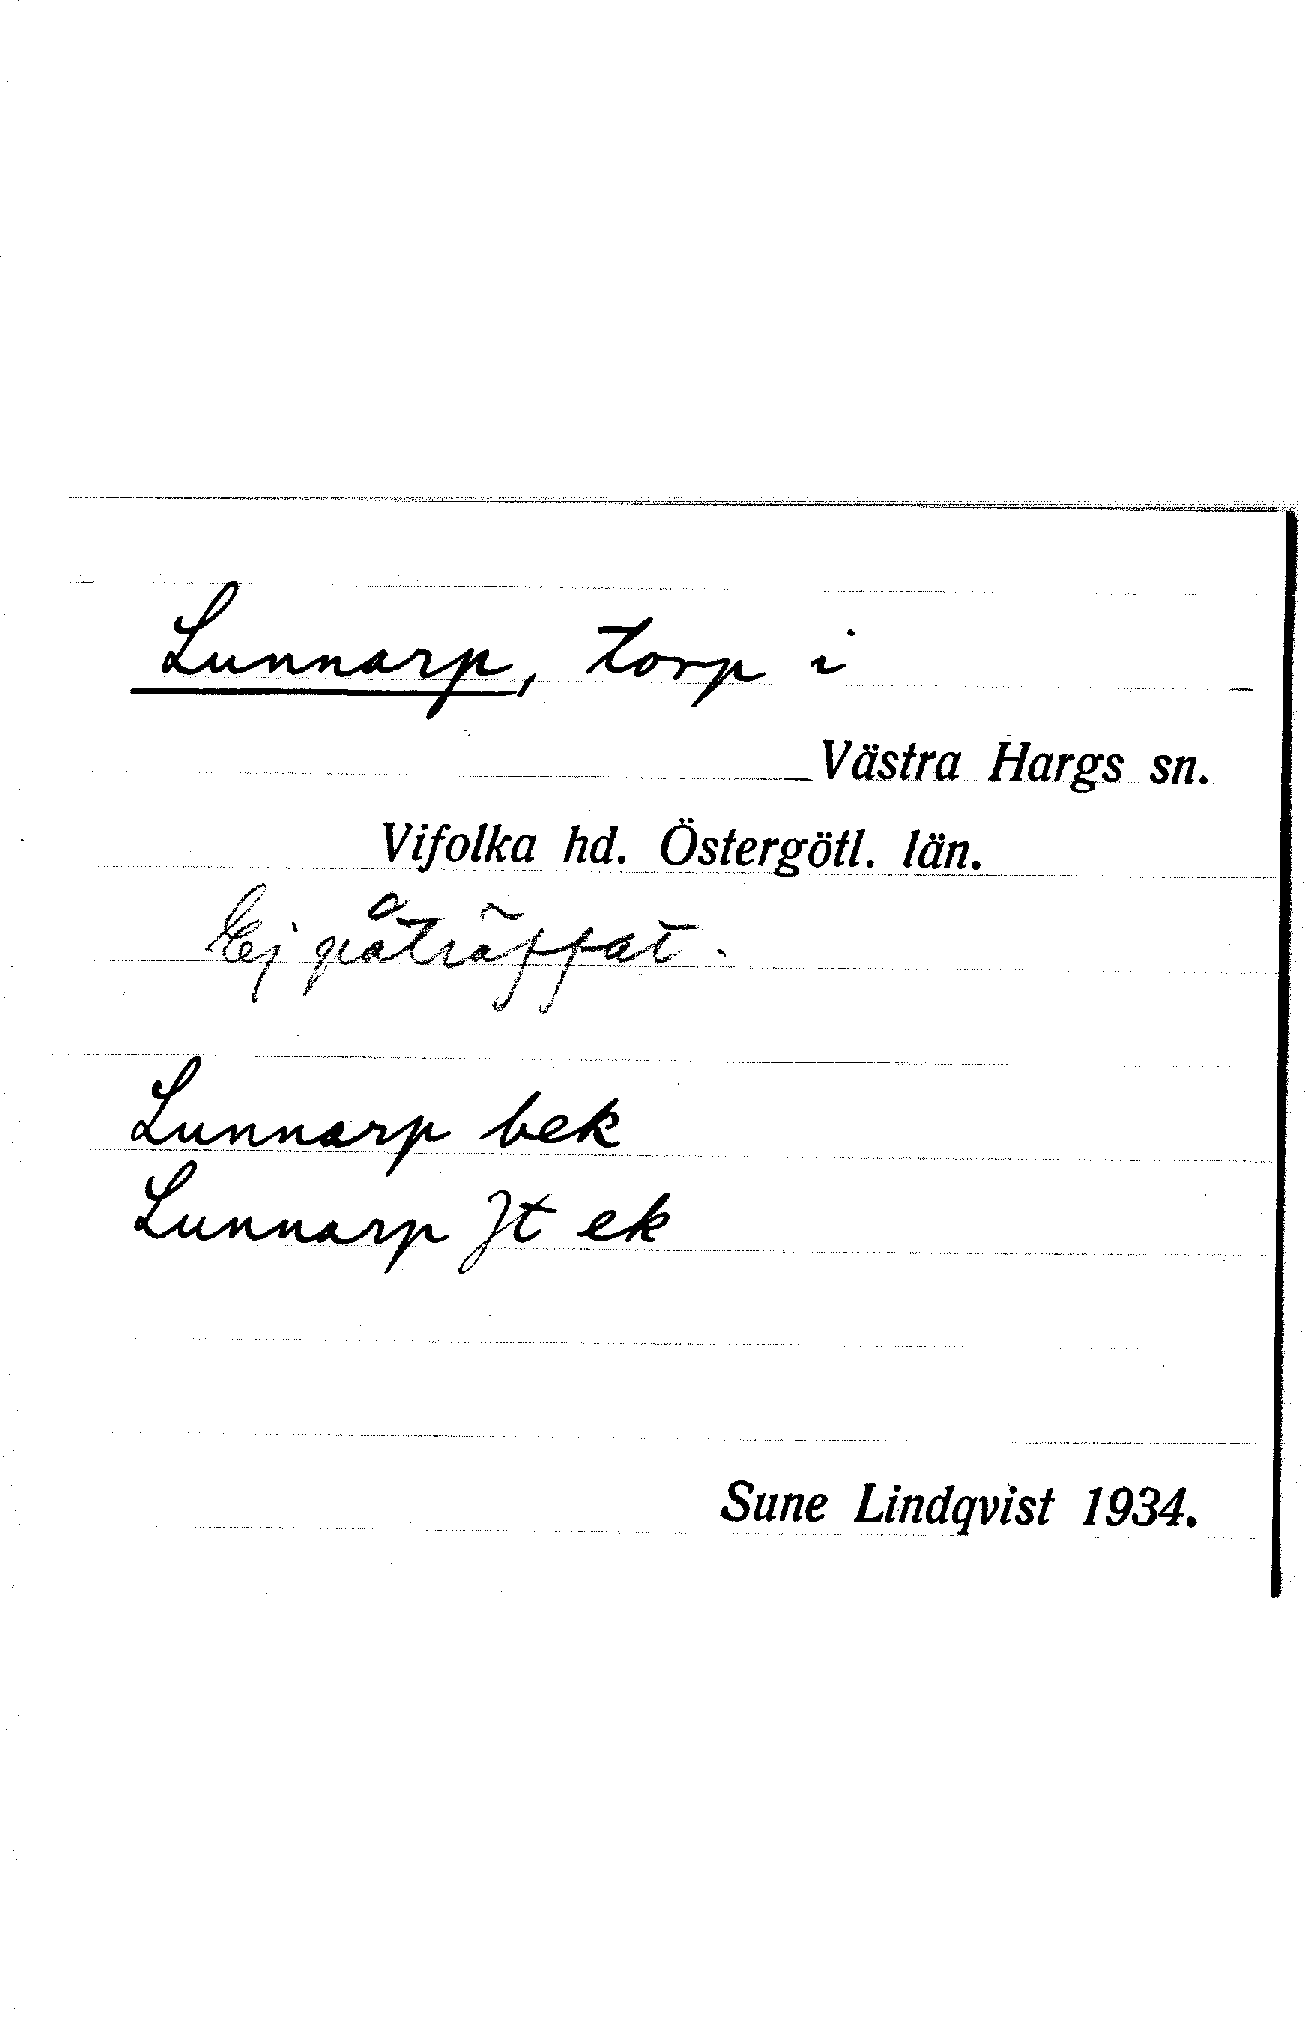 Lunnarp, torp i
Västra Hargs sn.
Vifolka hd. Östergötl. län.
Ej påträffat.
Lunnarp bek
Lunnarp Jt ek
Sune Lindqvist 1934.